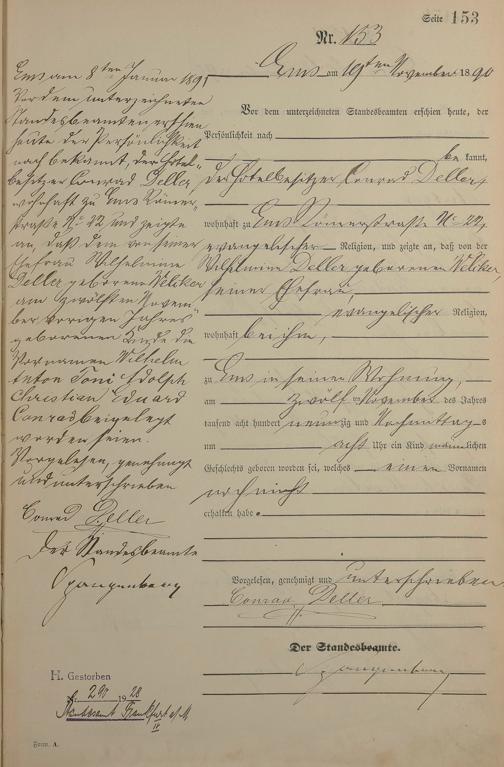 Seite 153
Nr. 153
Ems am 19ten November 1890
Vor dem unterzeichneten Standesbeamten erschien heute, der
Persönlichkeit nach
bekannt,
der Hotelbesitzer Conrad Deller,
wohnhaft zu Ems Römerstraße No 22,
evangelischer Religion, und zeigte an, daß von der
Wilhelmine Deller geborenen Weliker,
seiner Ehefrau,
evangelischer Religion,
wohnhaft bei ihm,
zu Ems in seiner Wohnung,
am zwölf November des Jahres
tausend acht hundert neunzig und Nachmittags
um acht Uhr ein Kind männlichen
Geschlechts geboren worden sei, welches einen Vornamen
noch nicht
erhalten habe.
Vorgelesen, genehmigt und unterschrieben
Conrad Deller
Der Standesbeamte.
Spangenberg
Ems am 8ten Januar 1891
Vor dem unterzeichneten
Standesbeamten erschien
heute der Persönlichkeit
nach bekannt, der Hotel-
besitzer Conrad Deller,
wohnhaft zu Ems Römer-
straße No 22 und zeigte
an, daß dem von seiner
Ehefrau Wilhelmine
Deller geborenen Weliker
am zwölften Novem-
ber vorigen Jahres
geborenen Kinde die
Vornamen Wilhelm
Anton Toni Adolph
Christian Eduard
Conrad beigelegt
worden seien.
Vorgelesen, genehmigt
und unterschrieben
Conrad Deller
Der Standesbeamte
Spangenberg
H. Gestorben
290 1928
Standesamt Frankfurt a/M
Form. A.